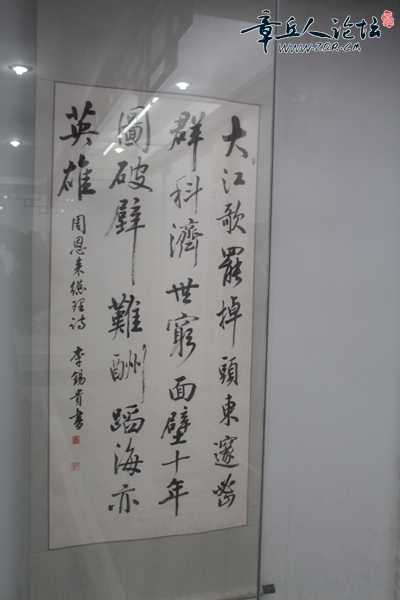 章丘人论坛
www.ZQR.CN
大江歌罷掉頭東邃密
群科濟世窮面壁十年
圖破壁難酬蹈海亦
英雄
周恩来總理诗 李錫貴書